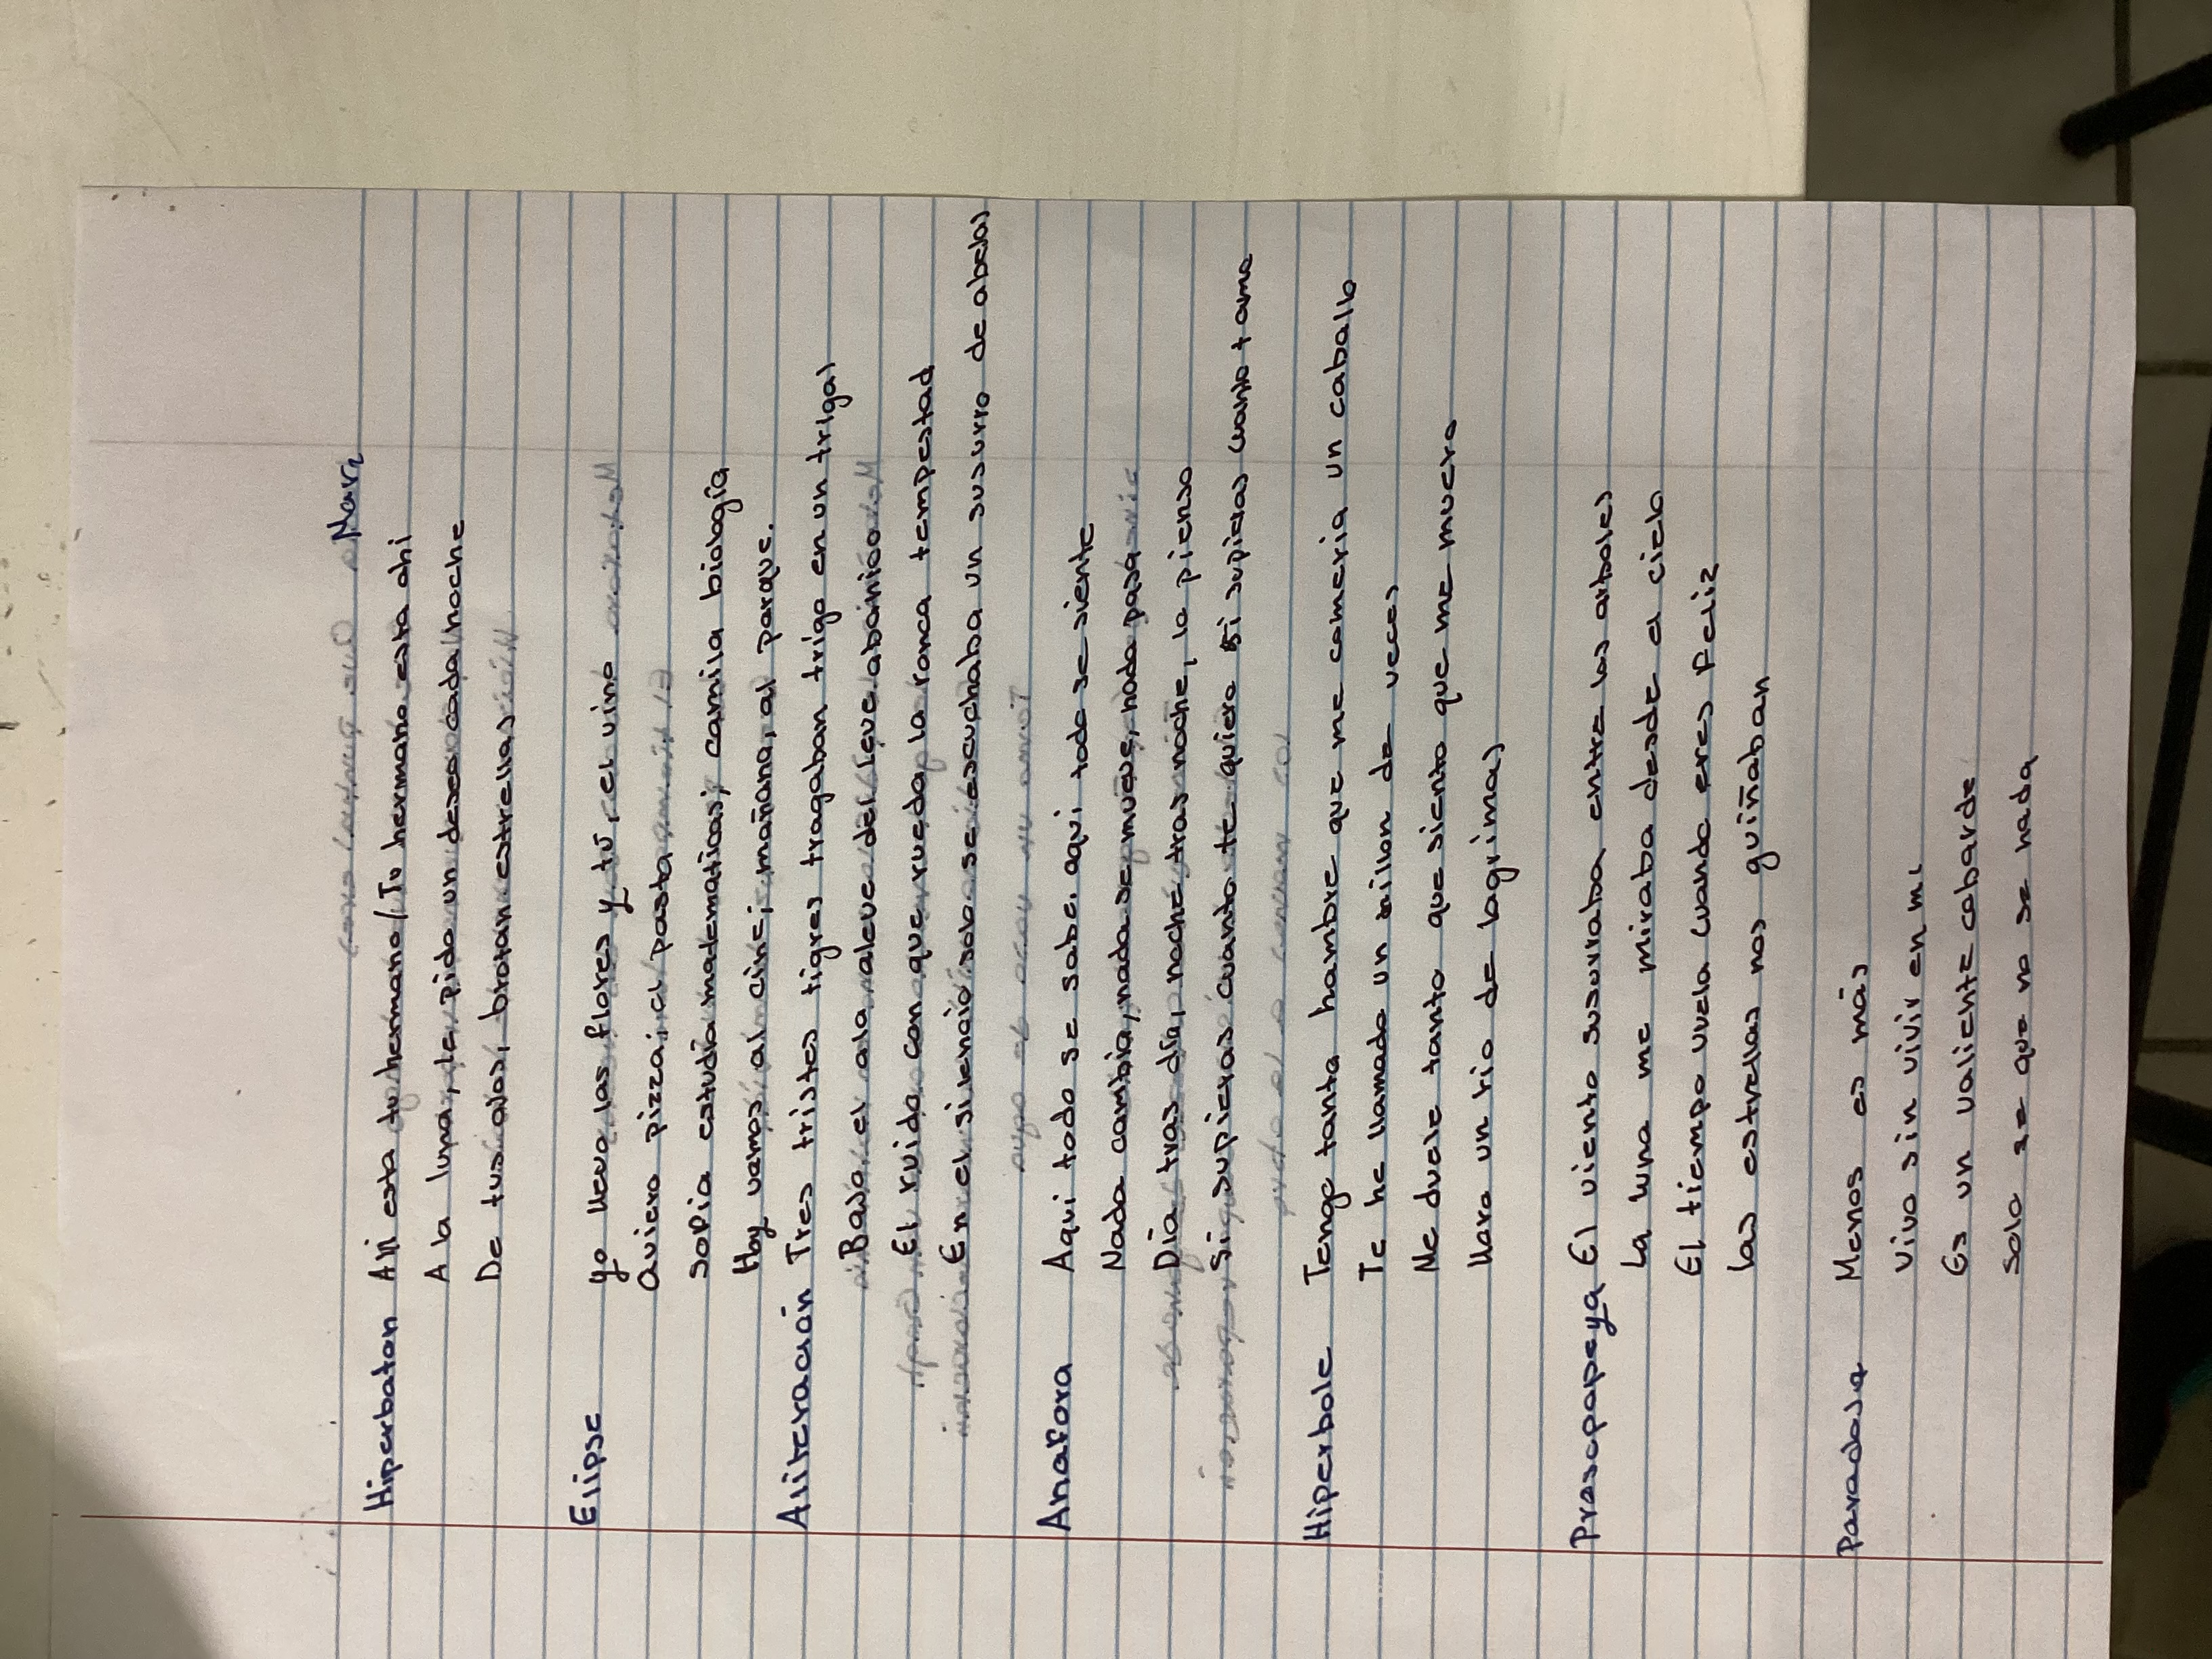 Mari
Hiperbaton Ahi esta tu hermano/Tu hermano esta ahi
A la luna, le pido un deseo cada noche
De tus ojos, brotan estrellas
Elipse yo llevo las flores y tú, el vino
Quiero pizza; el pasta
Sofia estudia matematicas; camila biología
Hoy vamos al cine; mañana, al parque.
Aliteración Tres tristes tigres tragaban trigo en un trigal
Bajo el ala aleve del leve abanico
El ruido con que rueda la ronca tempestad
En el silencio solo se escuchaba un susurro de abejas
Anafora Aqui todo se sabe, aqui todo se siente
Nada cambia, nada se mueve, nada pasa
Día tras día, noche tras noche, lo pienso
Si supieras cuanto te quiero si supieras cuanto t amo
Hiperbole Tengo tanta hambre que me comeria un caballo
Te he llamado un millon de veces
Me duele tanto que siento que me muero
llaro un rio de lagrimas
Prosopopeya El viento susurraba entre los arboles
La luna me miraba desde el cielo
El tiempo vuela cuando eres feliz
las estrellas nos guiñaban
Paradoja Menos es más
Vivo sin vivir en mi
Es un valiente cobarde
Solo se que no se nada